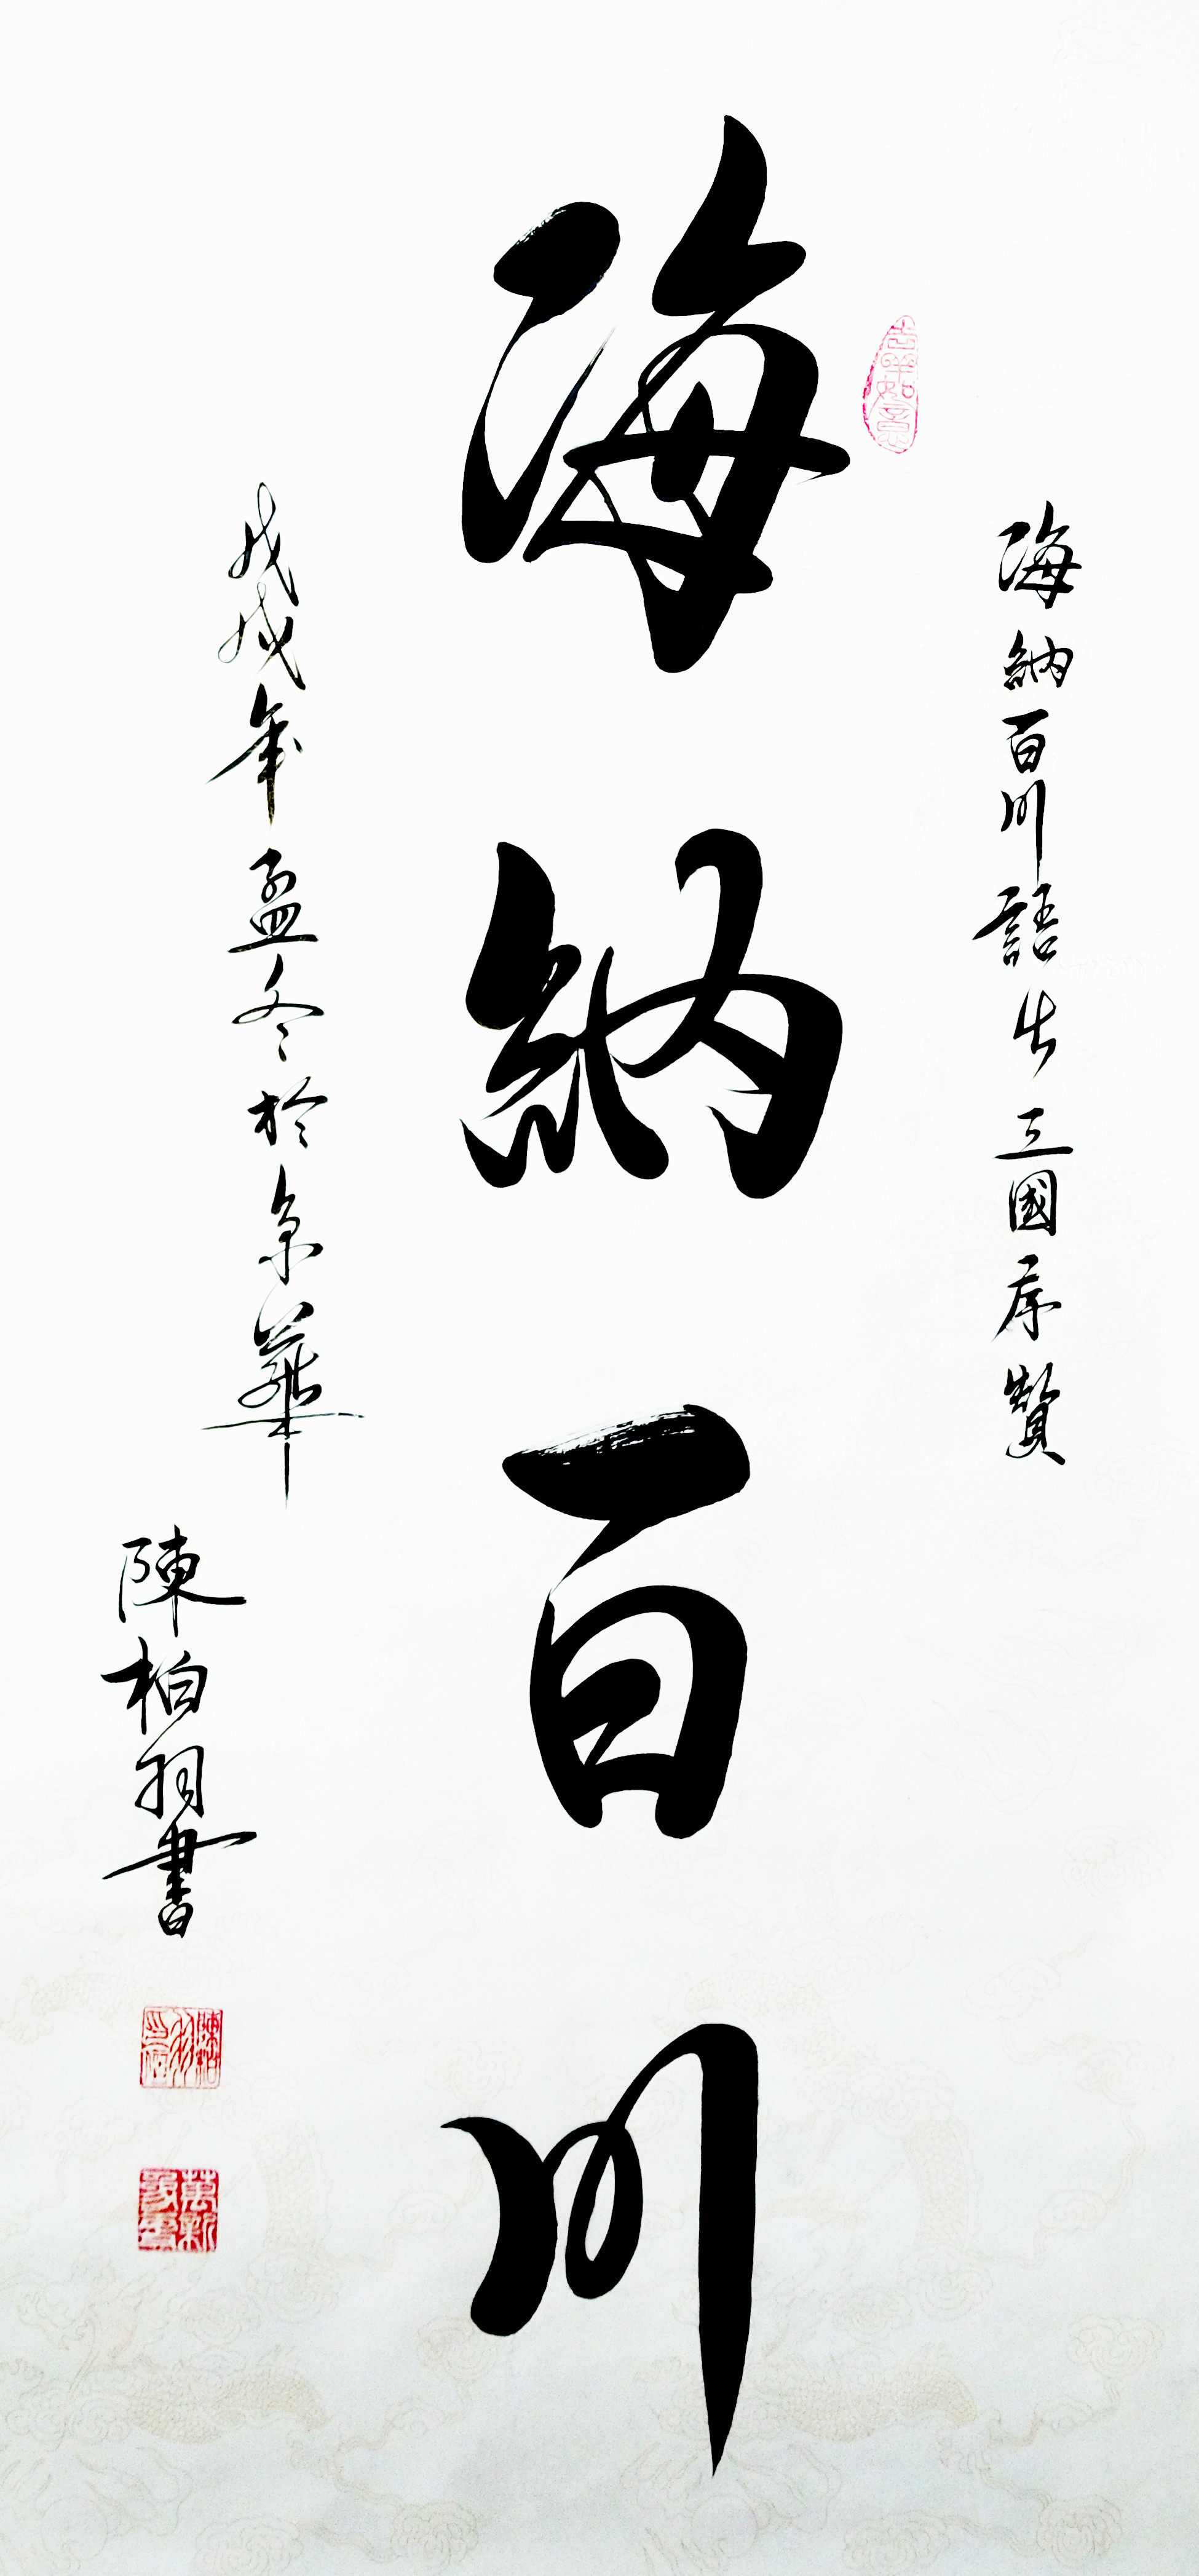 海納百川語出三國序贊
吉羊如意
海納百川
戊戌年孟冬於京華
陳柏羽書